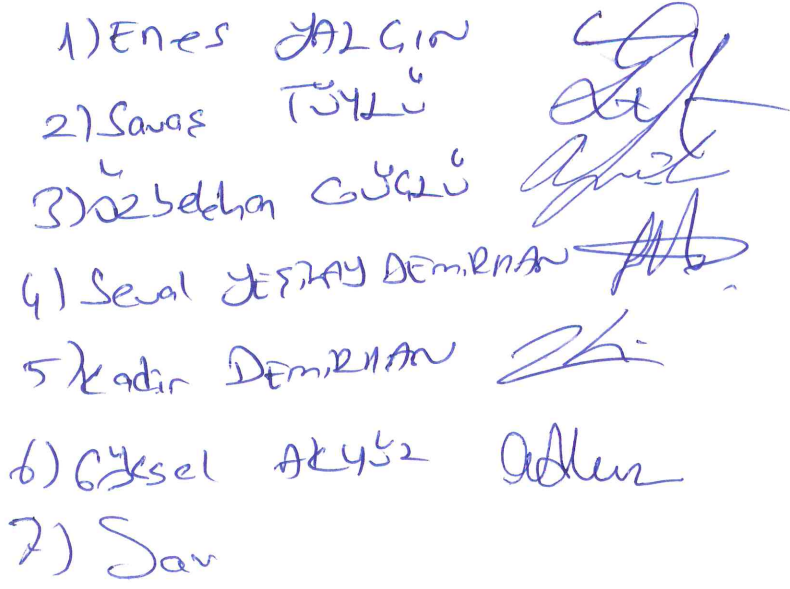 1) Enes YALÇIN
2) Savaş TÜYLÜ
3) Özbekhan GÜÇLÜ
4) Seval YEŞİLAY DEMİRHAN
5) Kadir DEMİRHAN
6) Göksel AKYÜZ
7) Sav